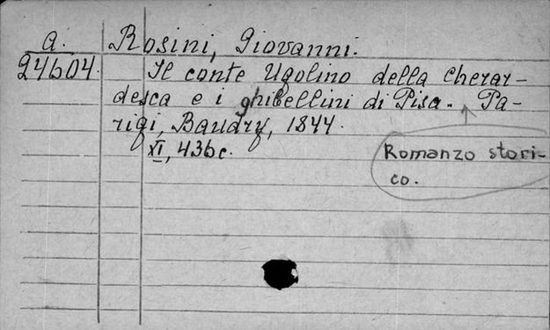 a.
24604
Rosini, Giovanni.
Il conte Ugolino della Cherar-
desca e i ghibellini di Pisa. Pa-
rigi, Baudry, 1844.
XI, 436c.
Romanzo stori-
co.